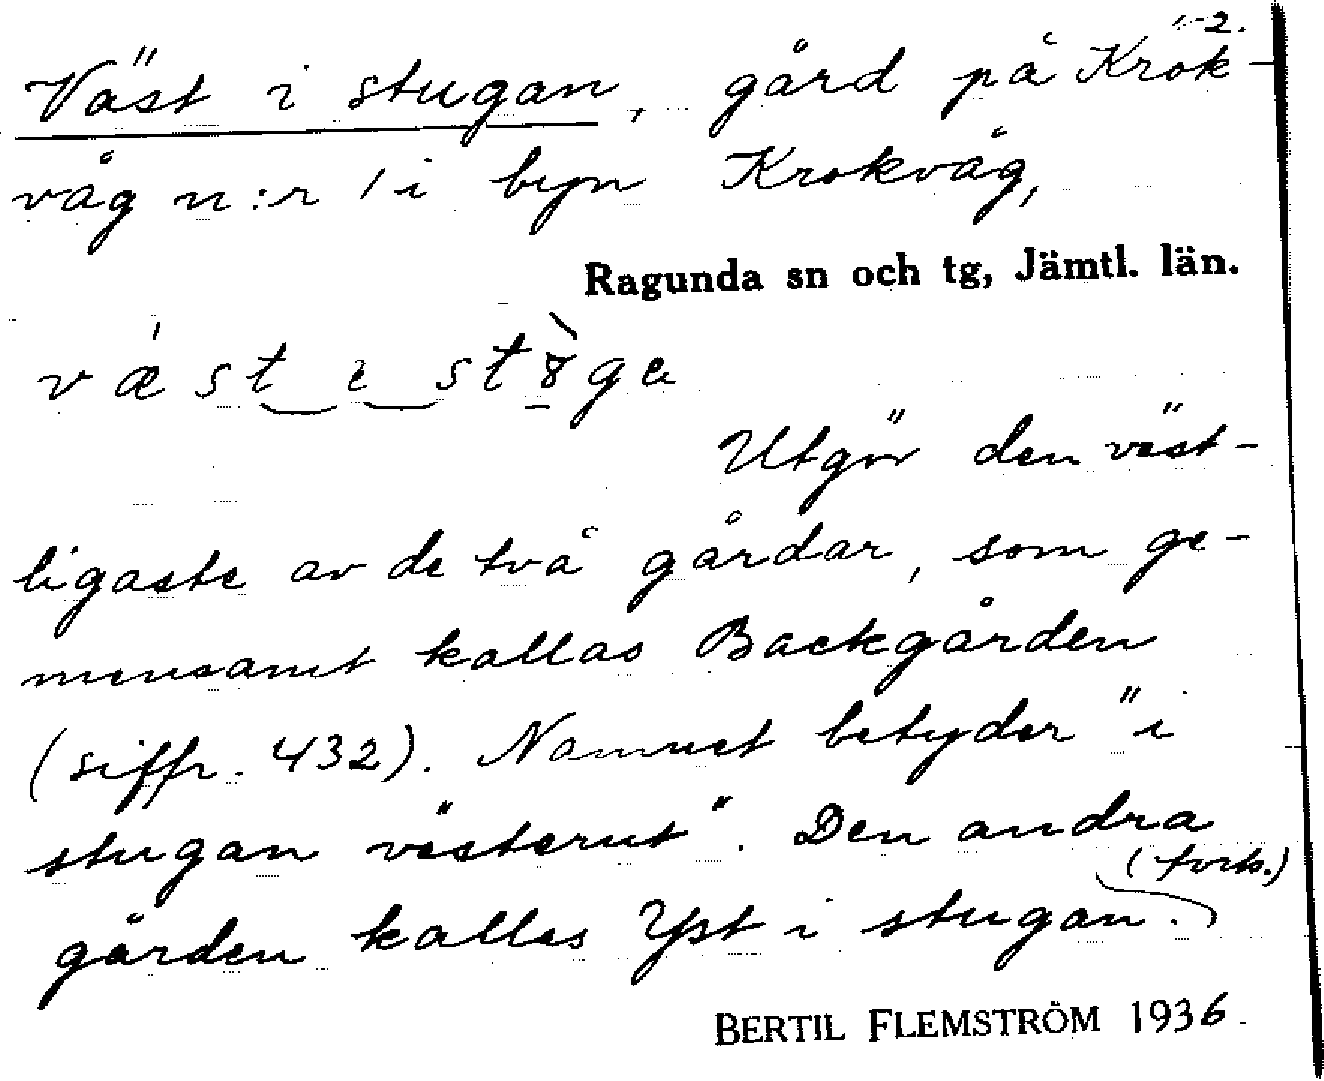 1-2.
Väst i stugan, gård på Krok-
våg n:r 1 i byn Krokvåg,
Ragunda sn och tg, Jämtl. län.
Utgör den väst-
ligaste av de två gårdar, som ge-
mensamt kallas Backgården
(siffr. 432). Namnet betyder "i
stugan västerut". Den andra
(forts.)
gården kallas Yst i stugan.
BERTIL FLEMSTRÖM 1936.